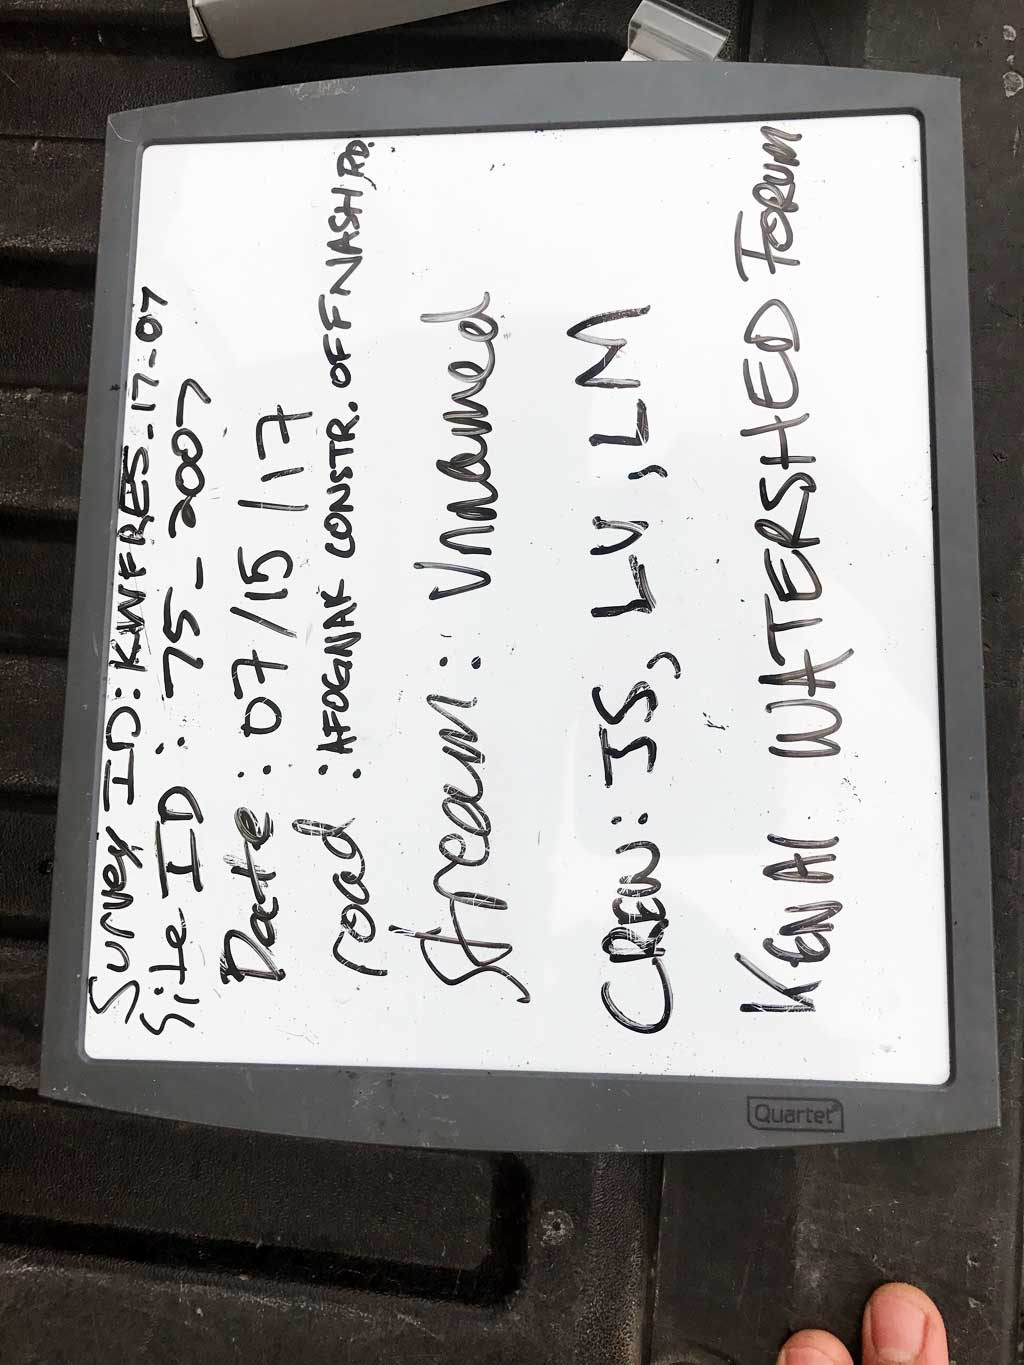 Survey ID: KWFRES-17-07
Site ID: 75-2007
Date: 07/15/17
road: AFOGNAK CONSTR. OFF NASH RD.
Stream: Unnamed
CREW: JS, LV, LM
KENAI WATERSHED FORUM
Quartet